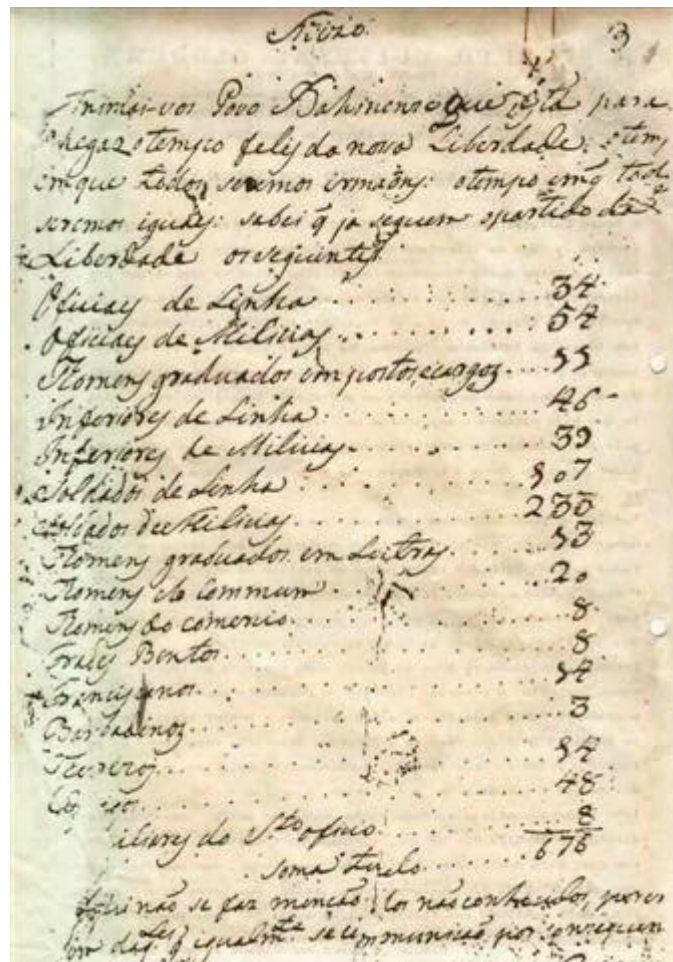 Avizo. 3
Animai-vos Povo Bahinense que está para
chegar o tempo felis da nosa Liberdade: o temp
em que todos seremos irmaons: o tempo em q̃ tod.
seremos iguays: sabei q̃ ja seguem o partido da
Liberdade os seguintes
Oficiays de Linha . . . 34
Oficiays de Milicias . . . 54
Homens graduados em postos, e cargos . . . 11
Inferiores de Linha . . . 46
Inferiores de Milicias . . . 39
Soldados de Linha . . . 107
Soldados de Milicias . . . 233
Homens graduados em Letras . . . 13
Homens do commum . . . 20
Homens do comercio . . . 8
Frades Bentos . . . 8
Franciscanos . . . 14
Barbadinos . . . 3
Terezos . . . 14
. . . 48
iliares do S.to oficio . . . 8
soma tudo . . . 676
não se faz menção los não conhecidos, porem
igualm.te se communicão por consequen